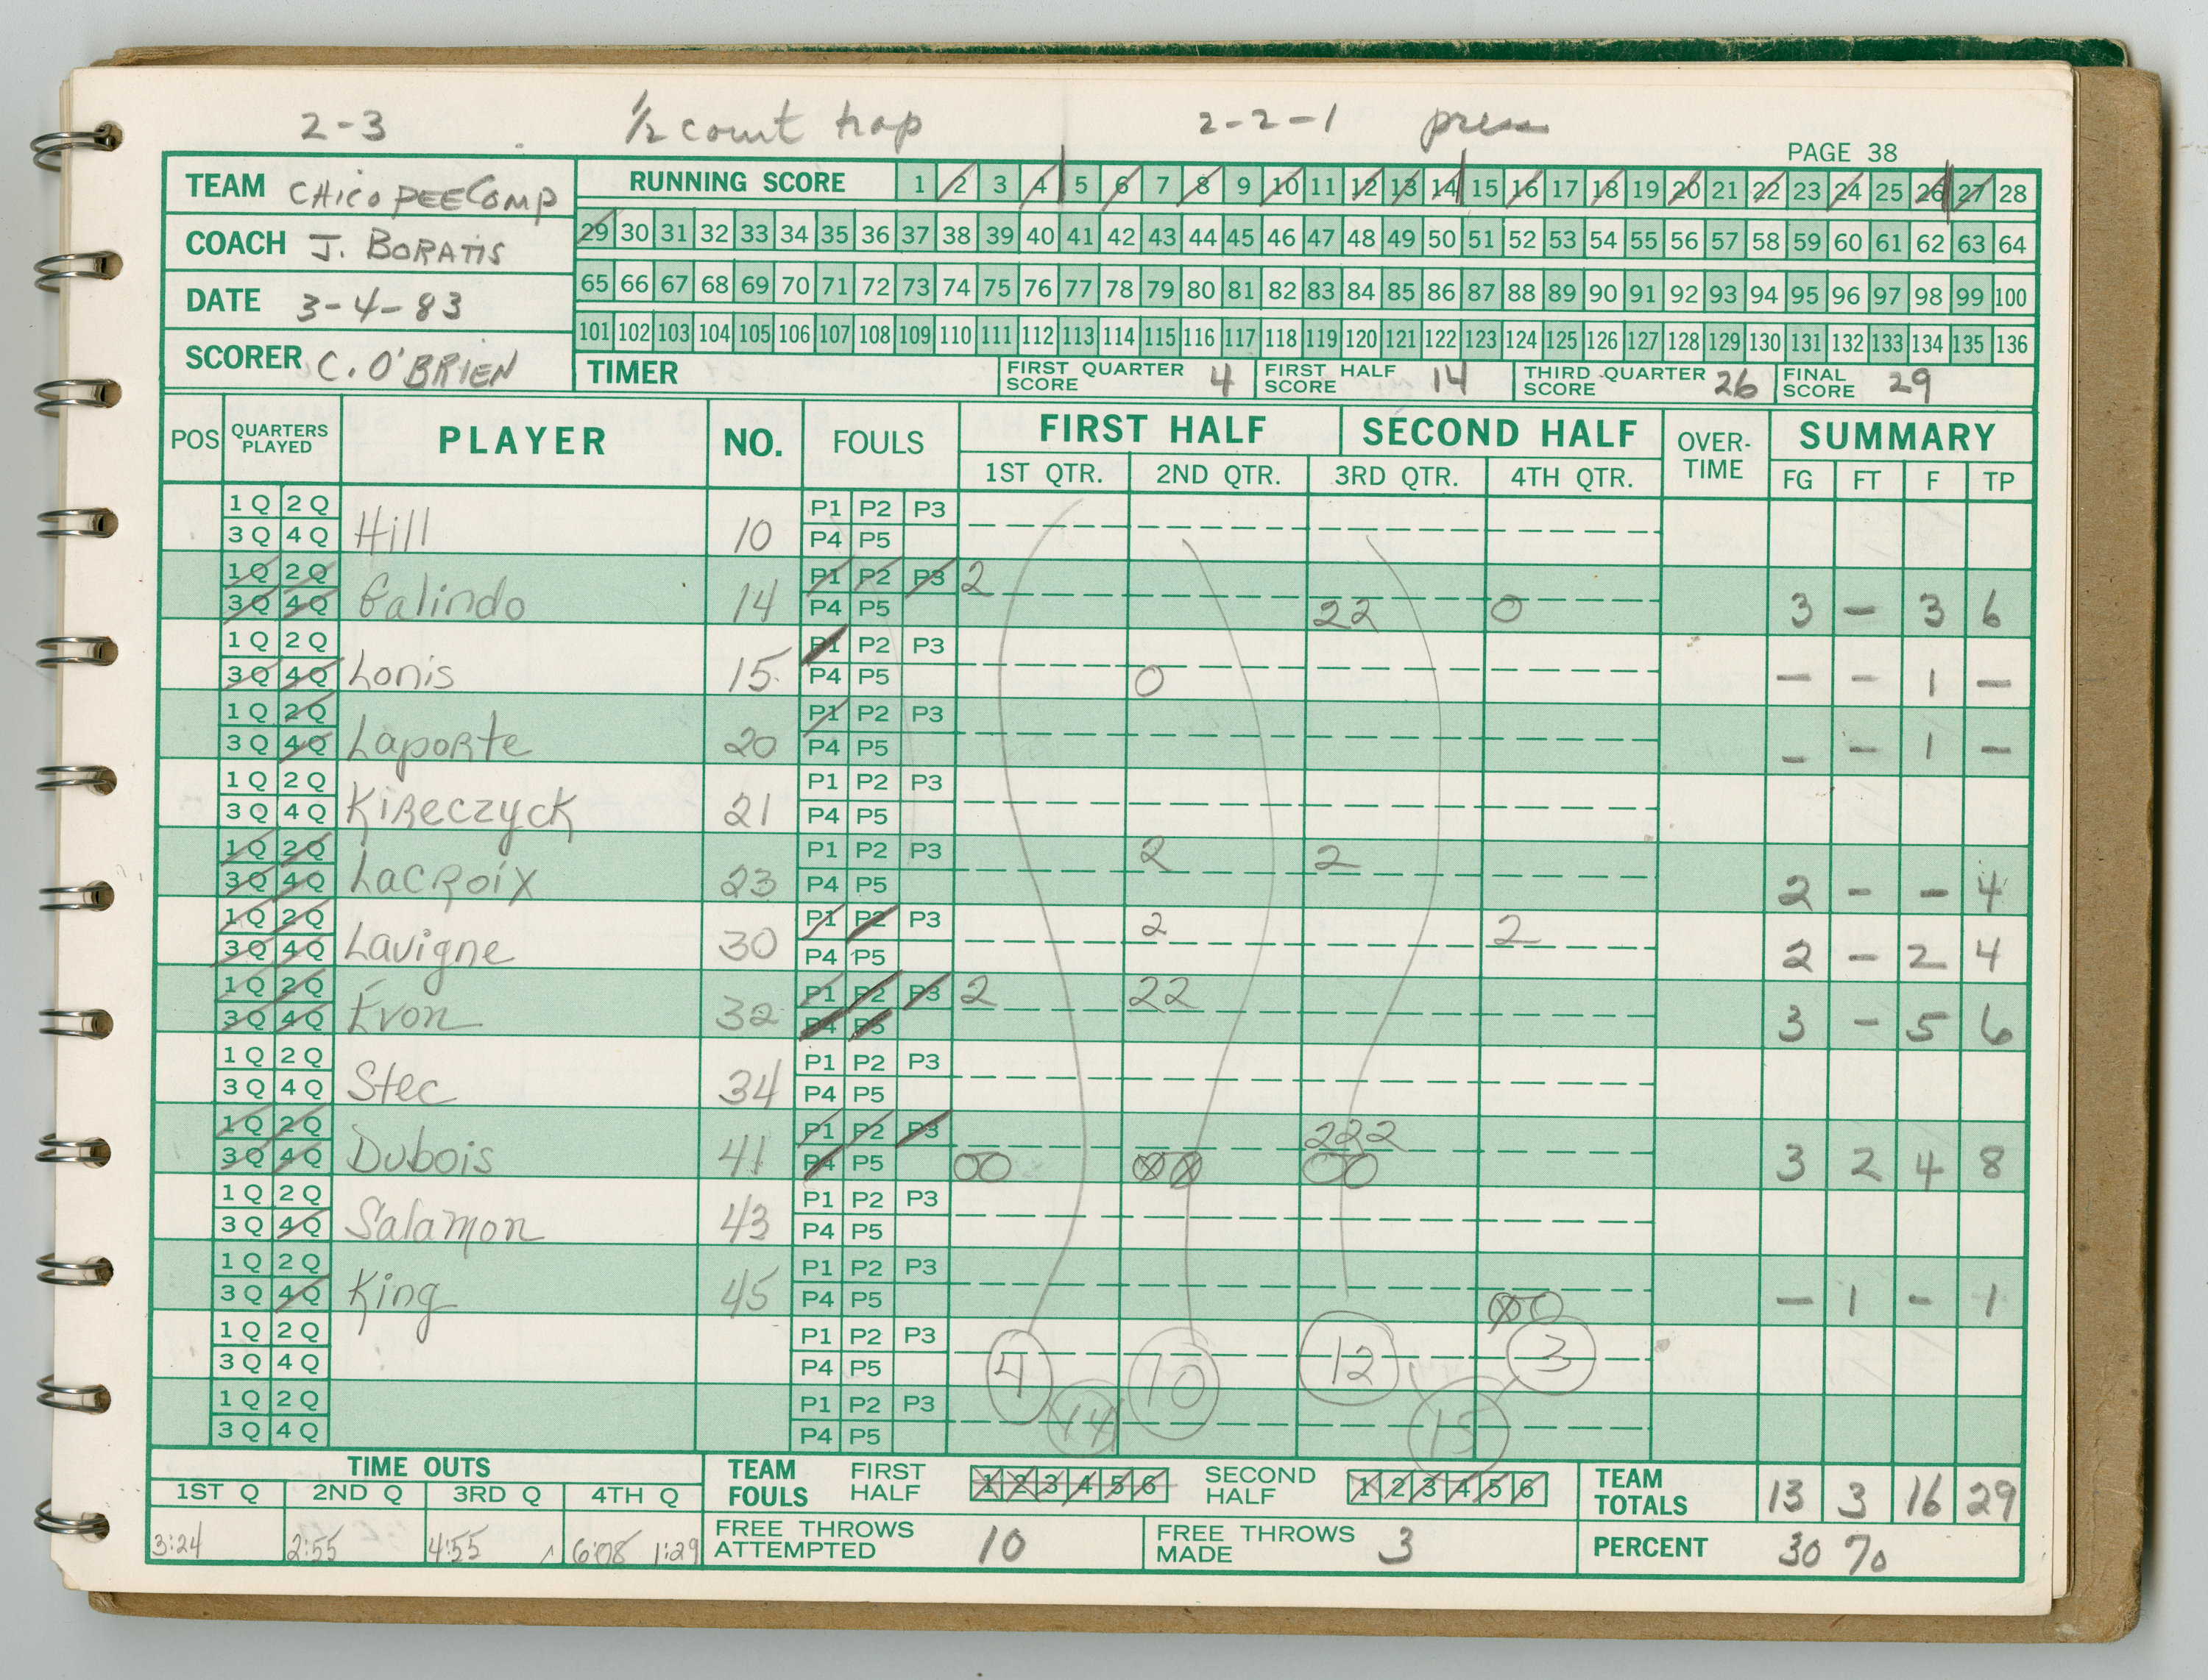 2-3 1/2 court trap 2-2-1 press
PAGE 38
TEAM CHICOPEE COMP
COACH J. BORATIS
DATE 3-4-83
SCORER C. O'BRIEN
RUNNING SCORE 1 2 3 4 5 6 7 8 9 10 11 12 13 14 15 16 17 18 19 20 21 22 23 24 25 26 27 28
29 30 31 32 33 34 35 36 37 38 39 40 41 42 43 44 45 46 47 48 49 50 51 52 53 54 55 56 57 58 59 60 61 62 63 64
65 66 67 68 69 70 71 72 73 74 75 76 77 78 79 80 81 82 83 84 85 86 87 88 89 90 91 92 93 94 95 96 97 98 99 100
101 102 103 104 105 106 107 108 109 110 111 112 113 114 115 116 117 118 119 120 121 122 123 124 125 126 127 128 129 130 131 132 133 134 135 136
TIMER FIRST QUARTER SCORE 4 FIRST HALF SCORE 14 THIRD QUARTER SCORE 26 FINAL SCORE 29
POS QUARTERS PLAYED PLAYER NO. FOULS FIRST HALF SECOND HALF OVER-TIME SUMMARY
1ST QTR. 2ND QTR. 3RD QTR. 4TH QTR. FG FT F TP
1 Q 2 Q P1 P2 P3
3 Q 4 Q Hill 10 P4 P5
1 Q 2 Q P1 P2 P3 2
3 Q 4 Q Galindo 14 P4 P5 22 0 3 - 3 6
1 Q 2 Q P1 P2 P3
3 Q 4 Q Lonis 15 P4 P5 0 - - 1 -
1 Q 2 Q P1 P2 P3
3 Q 4 Q Laporte 20 P4 P5 - - 1 -
1 Q 2 Q P1 P2 P3
3 Q 4 Q Kireczyck 21 P4 P5
1 Q 2 Q P1 P2 P3 2 2
3 Q 4 Q LaCroix 23 P4 P5 2 - - 4
1 Q 2 Q P1 P2 P3 2 2
3 Q 4 Q Lavigne 30 P4 P5 2 - 2 4
1 Q 2 Q P1 P2 P3 2 22
3 Q 4 Q Evon 32 P4 P5 3 - 5 6
1 Q 2 Q P1 P2 P3
3 Q 4 Q Stec 34 P4 P5
1 Q 2 Q P1 P2 P3 222
3 Q 4 Q Dubois 41 P4 P5 00 00 00 3 2 4 8
1 Q 2 Q P1 P2 P3
3 Q 4 Q Salamon 43 P4 P5
1 Q 2 Q P1 P2 P3
3 Q 4 Q King 45 P4 P5 00 - 1 - 1
1 Q 2 Q P1 P2 P3
3 Q 4 Q P4 P5 4 10 12 3
1 Q 2 Q P1 P2 P3
3 Q 4 Q P4 P5 14 15
TIME OUTS TEAM FOULS FIRST HALF 1 2 3 4 5 6 SECOND HALF 1 2 3 4 5 6 TEAM TOTALS 13 3 16 29
1ST Q 2ND Q 3RD Q 4TH Q
3:24 2:55 4:55 6:08 1:29 FREE THROWS ATTEMPTED 10 FREE THROWS MADE 3 PERCENT 30 %